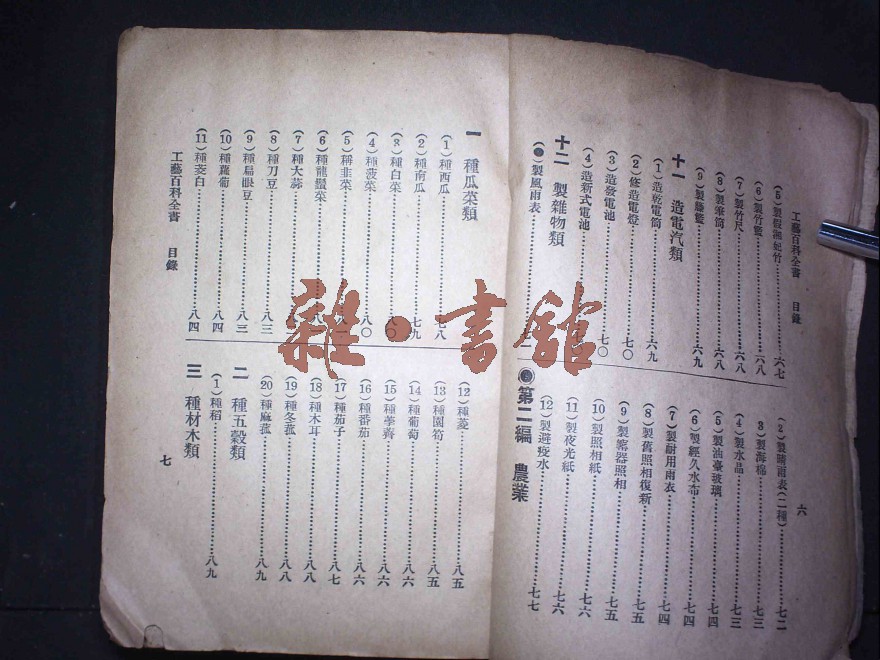 工藝百科全書 目錄
六
(5)製假湘妃竹……六七
(6)製竹籃……六八
(7)製竹尺……六八
(8)製筆筒……六八
(9)製籐籃……六九
十一 造電汽類
(1)造乾電筒……六九
(2)修造電燈……七〇
(3)造發電池……七〇
(4)造新式電池
十二 製雜物類
(●)製風雨表
(2)製晴雨表(二種)……七二
(3)製海棉……七三
(4)製水晶……七三
(5)製油臺玻璃……七四
(6)製經久水布……七四
(7)製耐用雨衣……七四
(8)製舊照相復新……七五
(9)製磁器照相……七五
(10)製照相紙……七六
(11)製夜光紙……七六
(12)製避疫水……七七
第二編 農業
一 種瓜菜類
(1)種西瓜……七八
(2)種南瓜……七九
(3)種白菜……八〇
(4)種菠菜……八〇
(5)種韭菜
(6)種龍鬚菜
(7)種大蒜
(8)種刀豆……八三
(9)種扁眼豆……八三
(10)種蘿蔔……八四
(11)種茭白……八四
(12)種菱……八五
(13)種園筍……八五
(14)種葡萄……八六
(15)種荸薺……八六
(16)種番茄……八六
(17)種茄子……八七
(18)種木耳……八八
(19)種冬菰……八八
(20)種麻菰……八九
二 種五穀類
(1)種稻……八九
三 種材木類
工藝百科全書 目錄
七
雜·書館